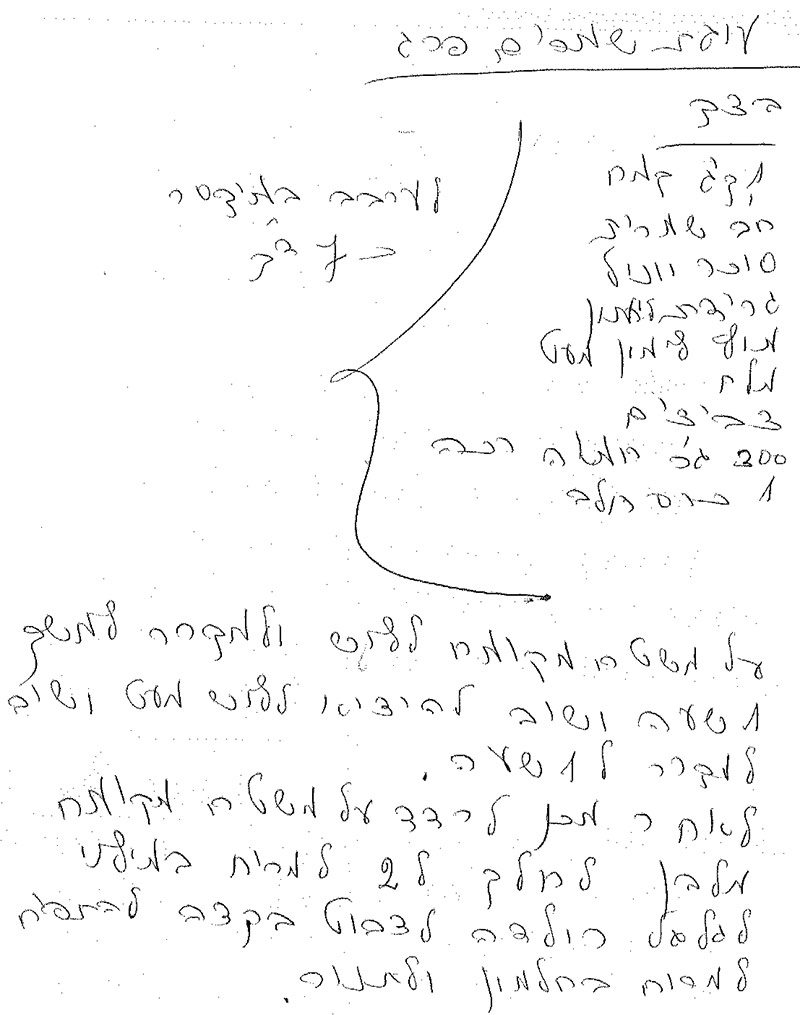 עוגת שמרים, פרג
בצק
1 ק"ג קמח
חב' שמרית
סוכר ווניל
גרידת לימון
מעט
מלח
ביצים
200 ג"ר חמאה רכה
1 כוס חלב
לערבב במיקסר
כ 7 דק
על משטח מקומח ללוש ולמקרר למשך
1 שעה ושוב להוציא ללוש מעט ושוב
למקרר ל 1 שעה.
לאחר מכן לרדד על משטח מקומח
מלבן לחלק ל 2 למרוח במילוי
לגלגל רולדה לצבוט בקצה להתפיח
למרוח בחלמון ולתנור.